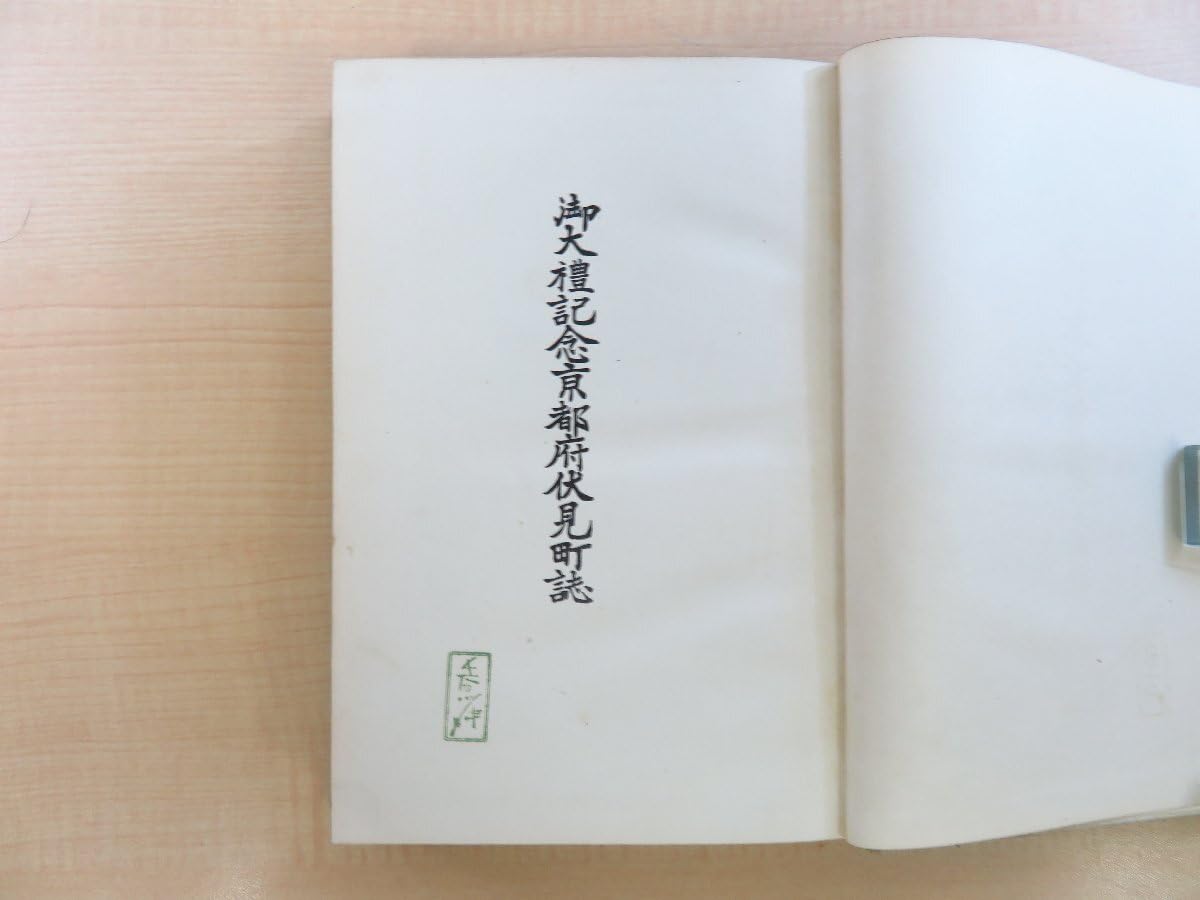 御大禮記念京都府伏見町誌